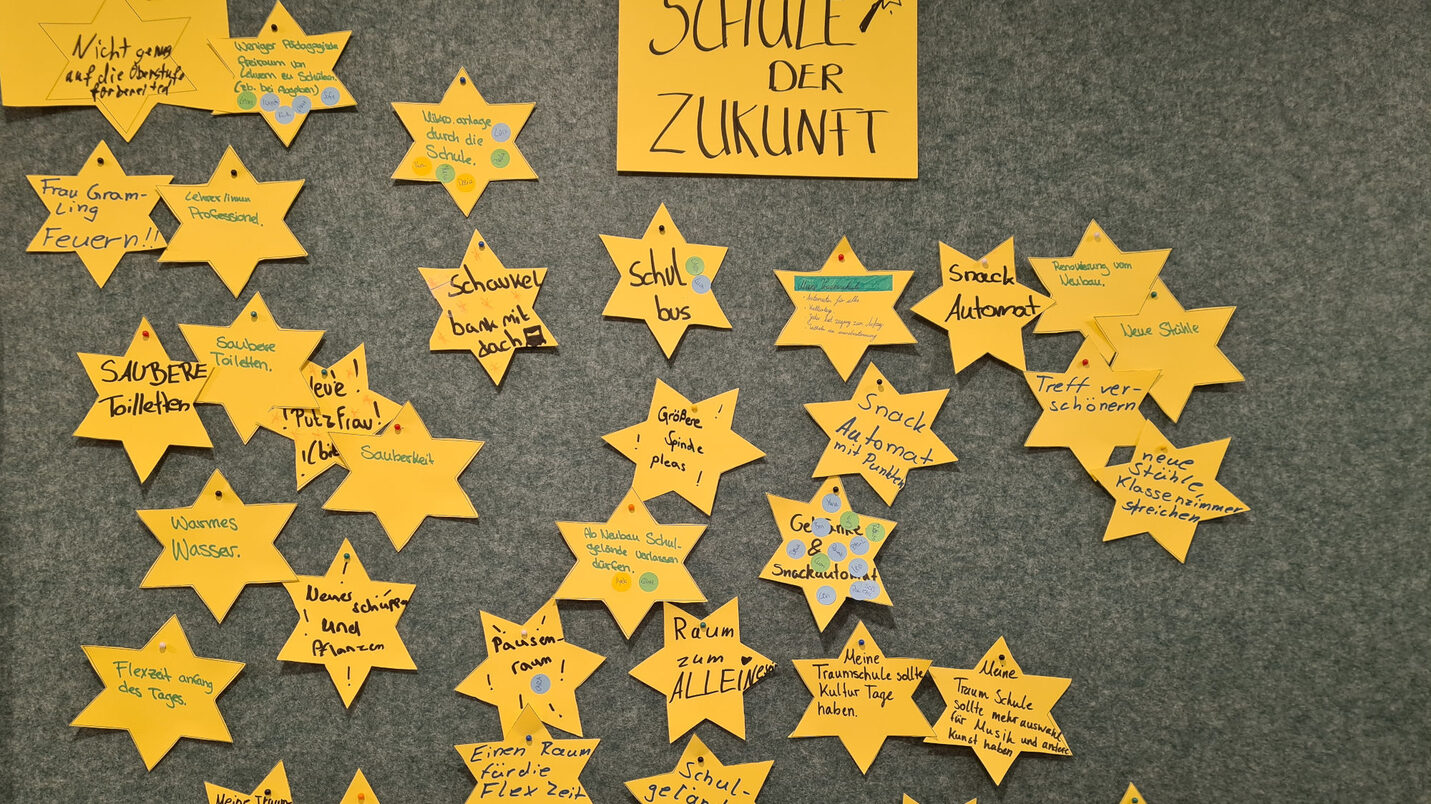 SCHULE
DER
ZUKUNFT
Nicht genug
auf die Oberstufe
forbereited
Weniger Pädagogische
Freiraum von
Lehrern zu Schülern
(zb. bei Abgaben)
Mikro.anlage
durch die
Schule.
Frau Gram-
ling
Feuern!!
Lehrer/innen
Professionel.
Schaukel
bank mit
dach
Schul
bus
Snack
Automat
Renovierung vom
Neubau.
Neue Stühle
SAUBERE
Toilletten
Saubere
Toiletten.
Neue!
!Putzfrau!
Sauberkeit
Größere
Spinde
pleas
Snack
Automat
mit Punkten
Treff ver-
schönern
neue
Stühle,
Klassenzimmer
streichen
Warmes
Wasser.
Ab Neubau Schul-
gelände verlassen
dürfen.
Getränke
&
Snackautomat
und
Pflanzen
Flexzeit anfang
des Tages.
Pausen-
raum
Raum
zum
ALLEINE
Meine
Traumschule sollte
Kultur Tage
haben.
Meine
Traum Schule
sollte mehr auswahl
für Musik und andere
Kunst haben
Einen Raum
für die
Flex Zeit
Schul-
Meine Traum